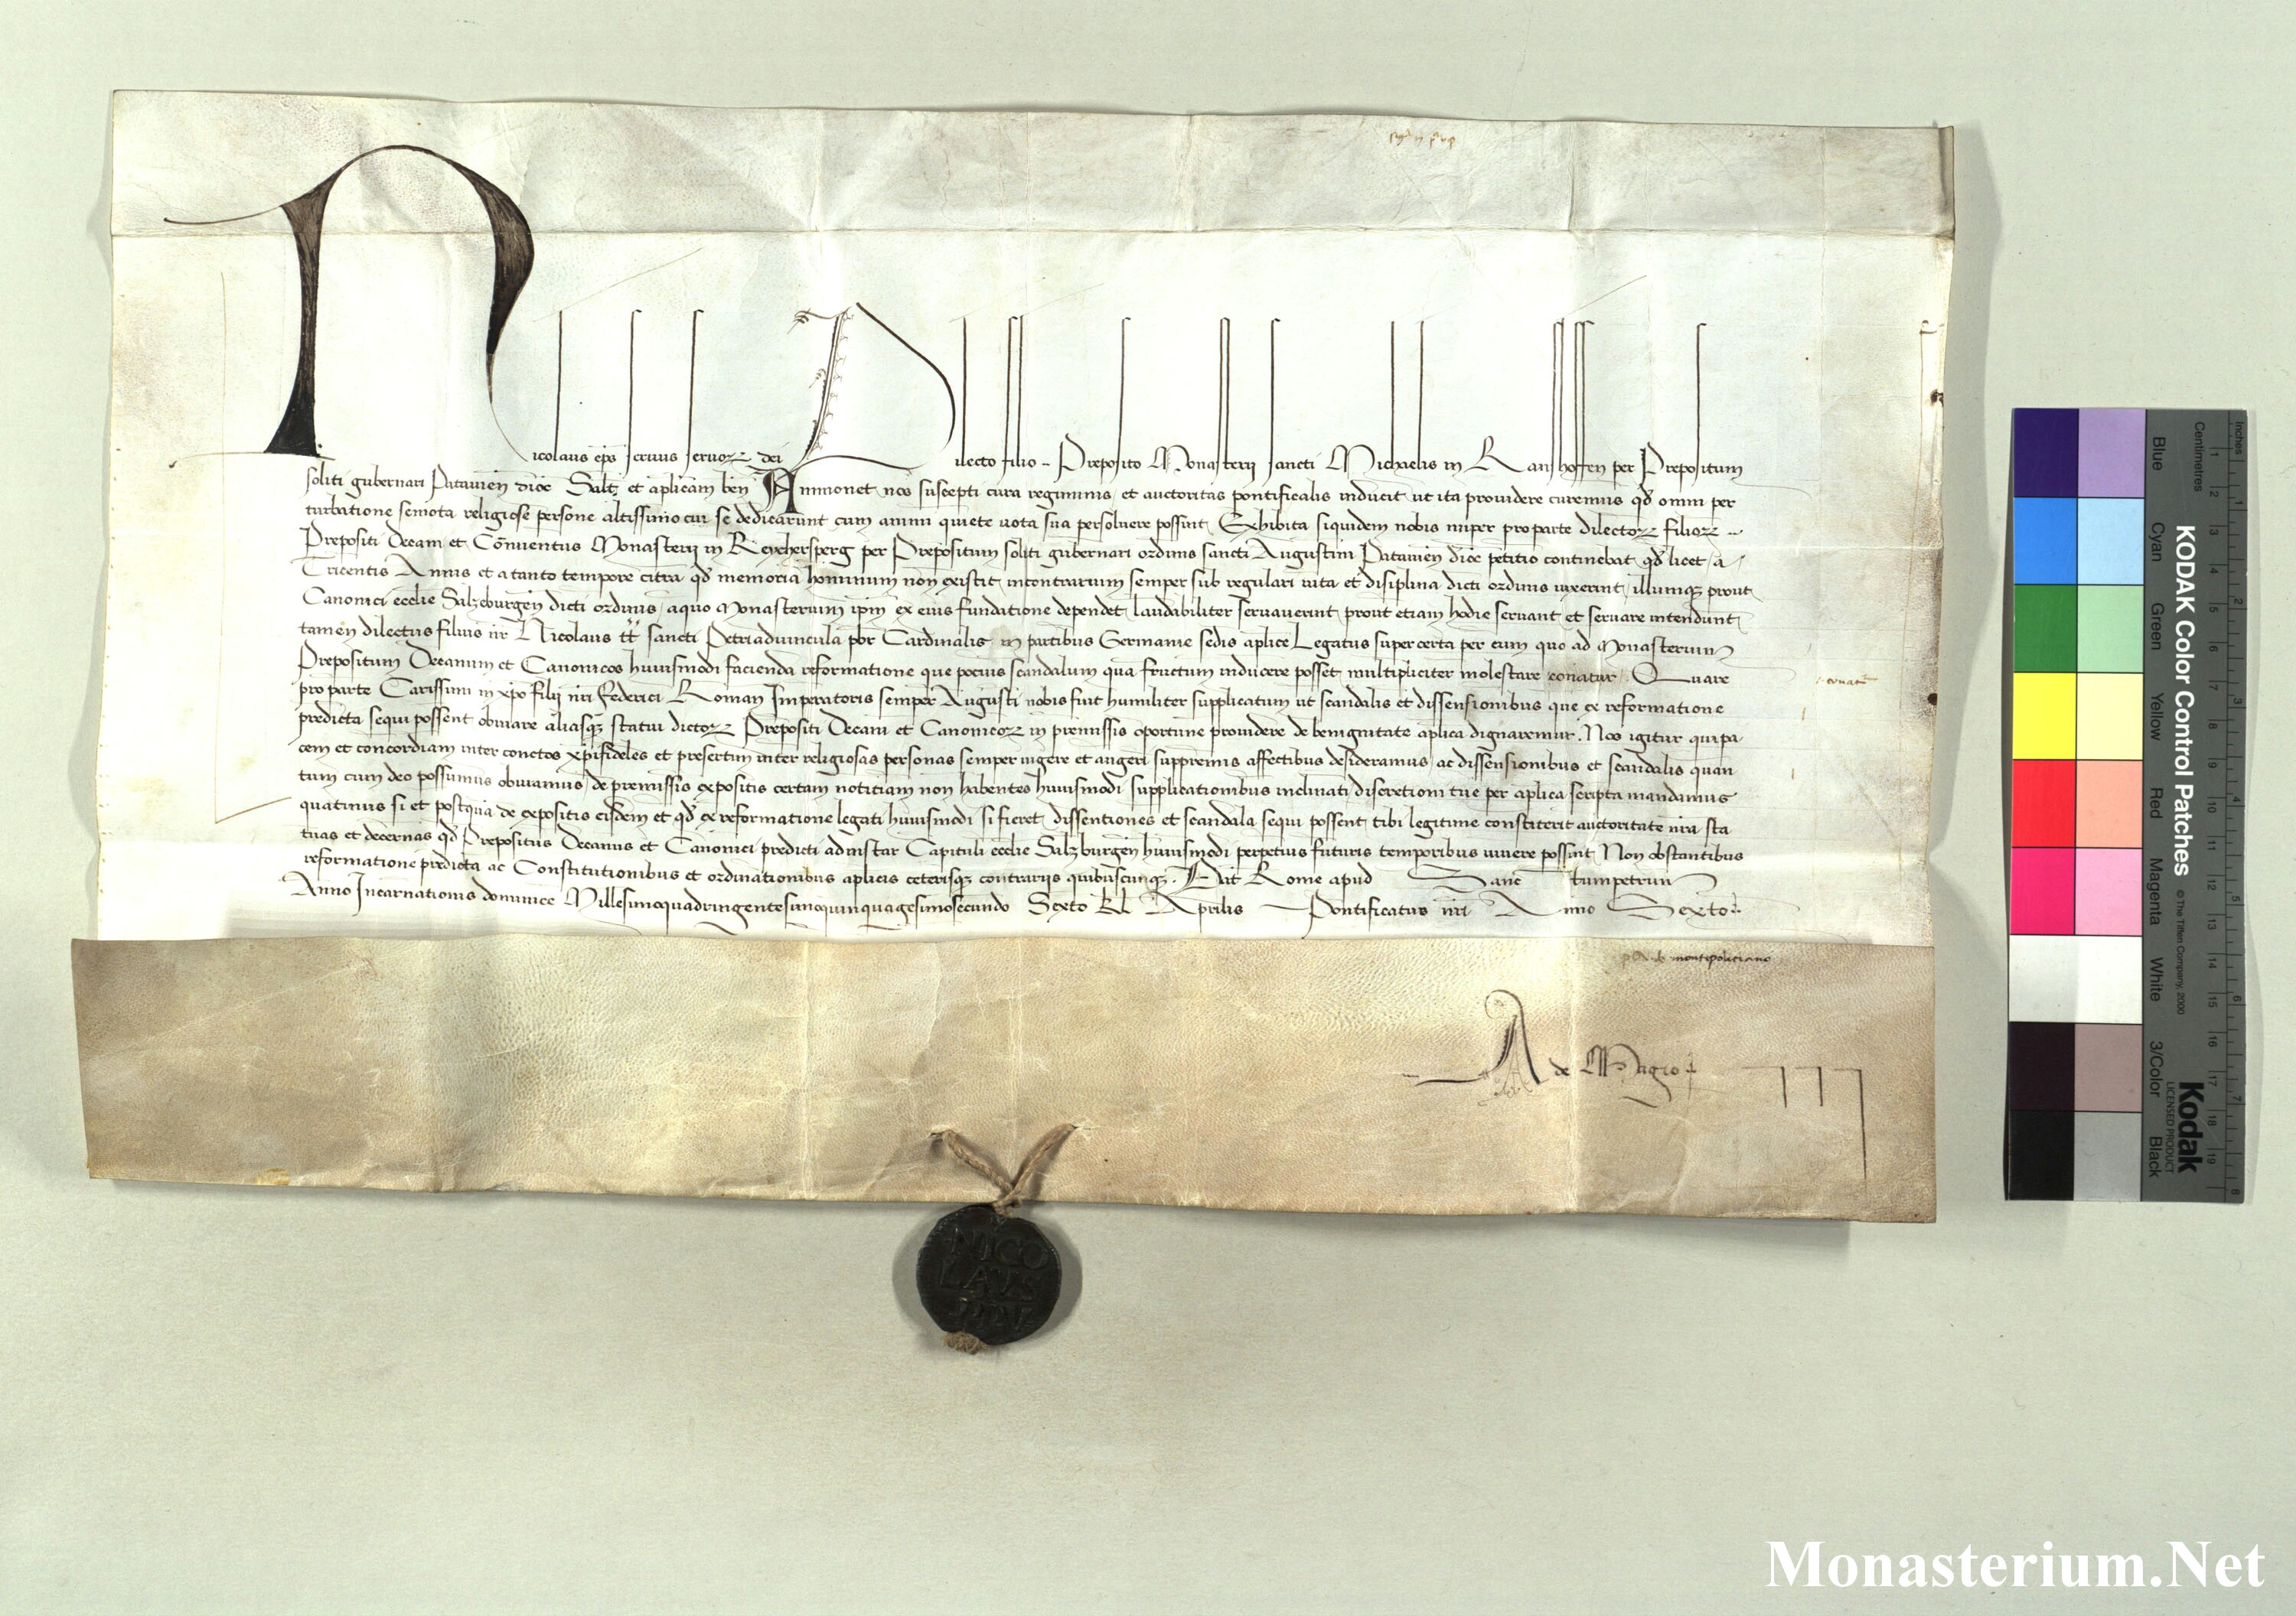 Nicolaus ep̄s seruus seruoꝝ dei Dilecto filio .. Preposito Monasterij sancti Michaelis in Ranshoffen per Prepositum
soliti gubernari Patauien̄ dioc̄ Salt̄ et ap̄licam ben̄ Ammonet nos suscepti cura regiminis et auctoritas pontificalis inducit ut ita prouidere curemus qd̄ omni per
turbatione semota religiose persone altissimo cui se dedicarunt cum animi quiete uota sua persoluere possint Exhibita siquidem nobis nuper pro parte dilectoꝝ filioꝝ ..
Prepositi Decani et Conuentus Monasterij in Reychersperg per Prepositum soliti gubernari ordinis sancti Augustini Patauien̄ dioc̄ petitio continebat qd̄ licet a
Tricentis Annis et a tanto tempore citra qd̄ memoria hominum non existit incontrarium semper sub regulari uita et disiplina dicti ordinis uixerint illumqꝫ prout
Canonici ecc̄lie Salzeburgen̄ dicti ordinis a quo Monasterium ip̄m ex eius fundatione dependet laudabiliter seruauerint prout etiam hodie seruant et seruare intendunt
tamen dilectus filius nr̄ Nicolaus tt̄ sancti Petri aduincula pb̄r Cardinalis in partibus Germanie sedis ap̄lice Legatus super certa per eum quo ad Monasterium
Prepositum Decanum et Canonicos huiusmodi facienda reformatione que pocius scandalum quā fructum inducere posset multipliciter molestare conatur. Quare
pro parte Carissimi in xp̄o filij nr̄i Federici Roman̄ Imperatoris semper Augusti nobis fuit humiliter supplicatum ut scandalis et dissensionibus que ex reformatione
predicta sequi possent obuiare aliasqꝫ statui dictoꝝ Prepositi Decani et Canonicoꝝ in premissis oportune prouidere de benignitate ap̄lica dignaremur. Nos igitur qui pa
cem et concordiam inter cunctos xp̄ifideles et presertim inter religiosas personas semper uigere et augeri suppremis affectibus desideramus ac dissensionibus et scandalis quan
tum cum deo possumus obuiamus de premissis expositis certam notitiam non habentes huiusmodi supplicationibus inclinati discretioni tue per ap̄lica scripta mandamus
quatinus si et postquā de expositis eisdem et qd̄ ex reformatione legati huiusmodi si fieret dissentiones et scandala sequi possent tibi legitime constiterit auctoritate nr̄a sta
tuas et decernas qd̄ Prepositus Decanus et Canonici predicti ad instar Capituli ecc̄lie Salzburgen̄ huiusmodi perpetuis futuris temporibus uiuere possint Non obstantibus
reformatione predicta ac Constitutionibus et ordinationibus ap̄licis ceterisqꝫ contrarijs quibuscunqꝫ. Dat̄ Rome apud Sanctumpetrum
Anno Incarnationis dominice Millesimoquadringentesimoquinquagesimosecundo Sexto kl̄ Aprilis Pontificatus nr̄i Anno Sexto
conatr̄
montepoliciano
A de Magio
NICO
LAVS
Blue Cyan Green Yellow Red Magenta White 3/Color Black
KODAK Color Control Patches © The Tiffen Company, 2000
Kodak
LICENSED PRODUCT
Centimetres
Inches
Monasterium.Net